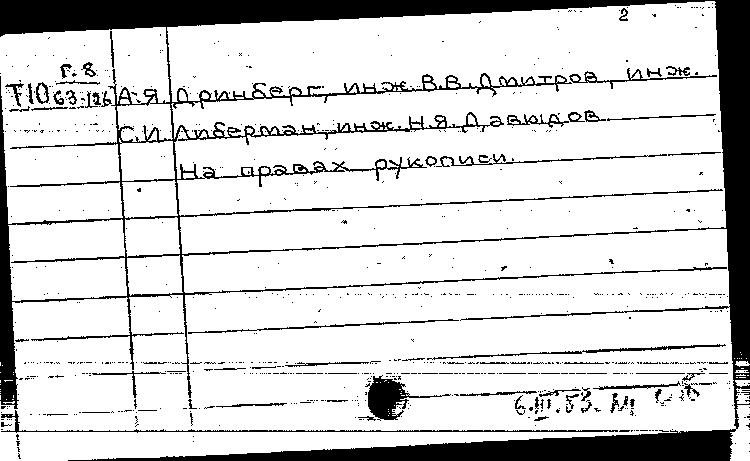 2
Г.8
Т10 63-126 А.Я. Дринберг, инж. В.В. Дмитров, инж.
С.И. Либерман, инж. Н.Я. Давыдов.
На правах рукописи.
6.III.53.